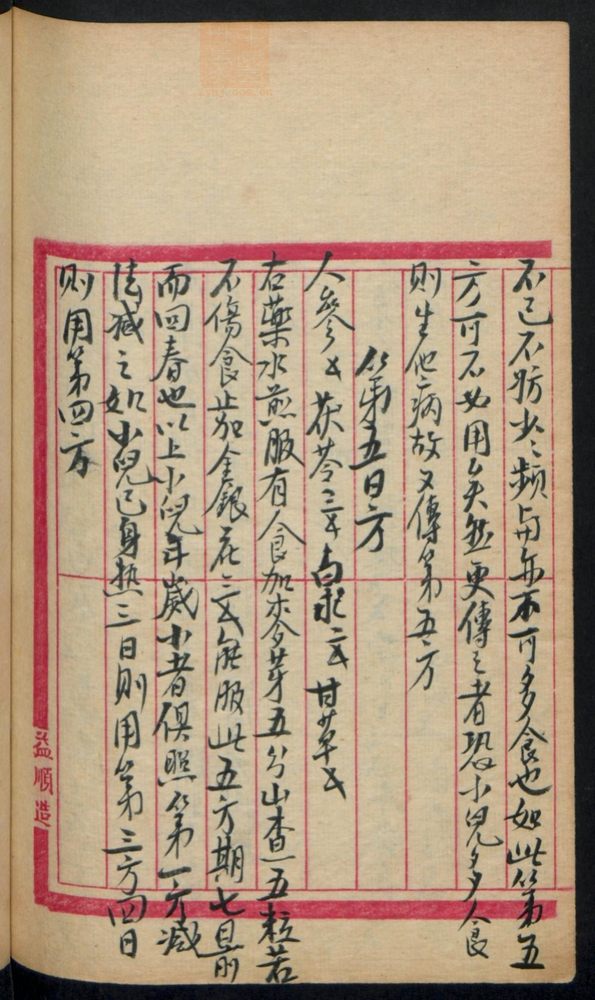 不已不妨少少頻與亦不可多食也如此第五
方可不必用矣然更傳之者恐小兒多食
則生他病故又傳第五方
第五日方
人參 茯苓三 白朮二 甘草
右藥水煎服有食加麥芽五分山查五粒若
不傷食止加金銀花二 能服此五方期七日前
而回春也以上小兒年歲小者俱照第一方減
法減之如小兒已身熱三日則用第三方四日
則用第四方
益順造